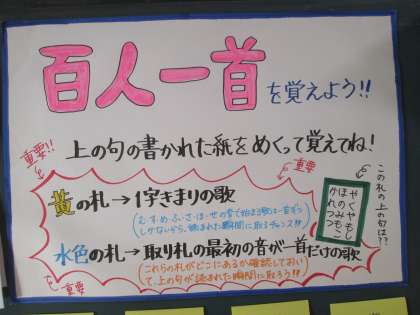 百人一首を覚えよう!!
重要!!
上の句の書かれた紙をめくって覚えてね!
重要
この札の上の句は??
黄の札→1字きまりの歌
(む・す・め・ふ・さ・ほ・せの音で始まる歌は一首ずつ
しかないから、読まれた瞬間に取るチャンス!!)
やくやもし
ほのみもこ
かれつつ
水色の札→取り札の最初の音が一首だけの歌
(これらの札がどこにあるか確認しておい
て、上の句が読まれた瞬間に取ろう!!)
重要